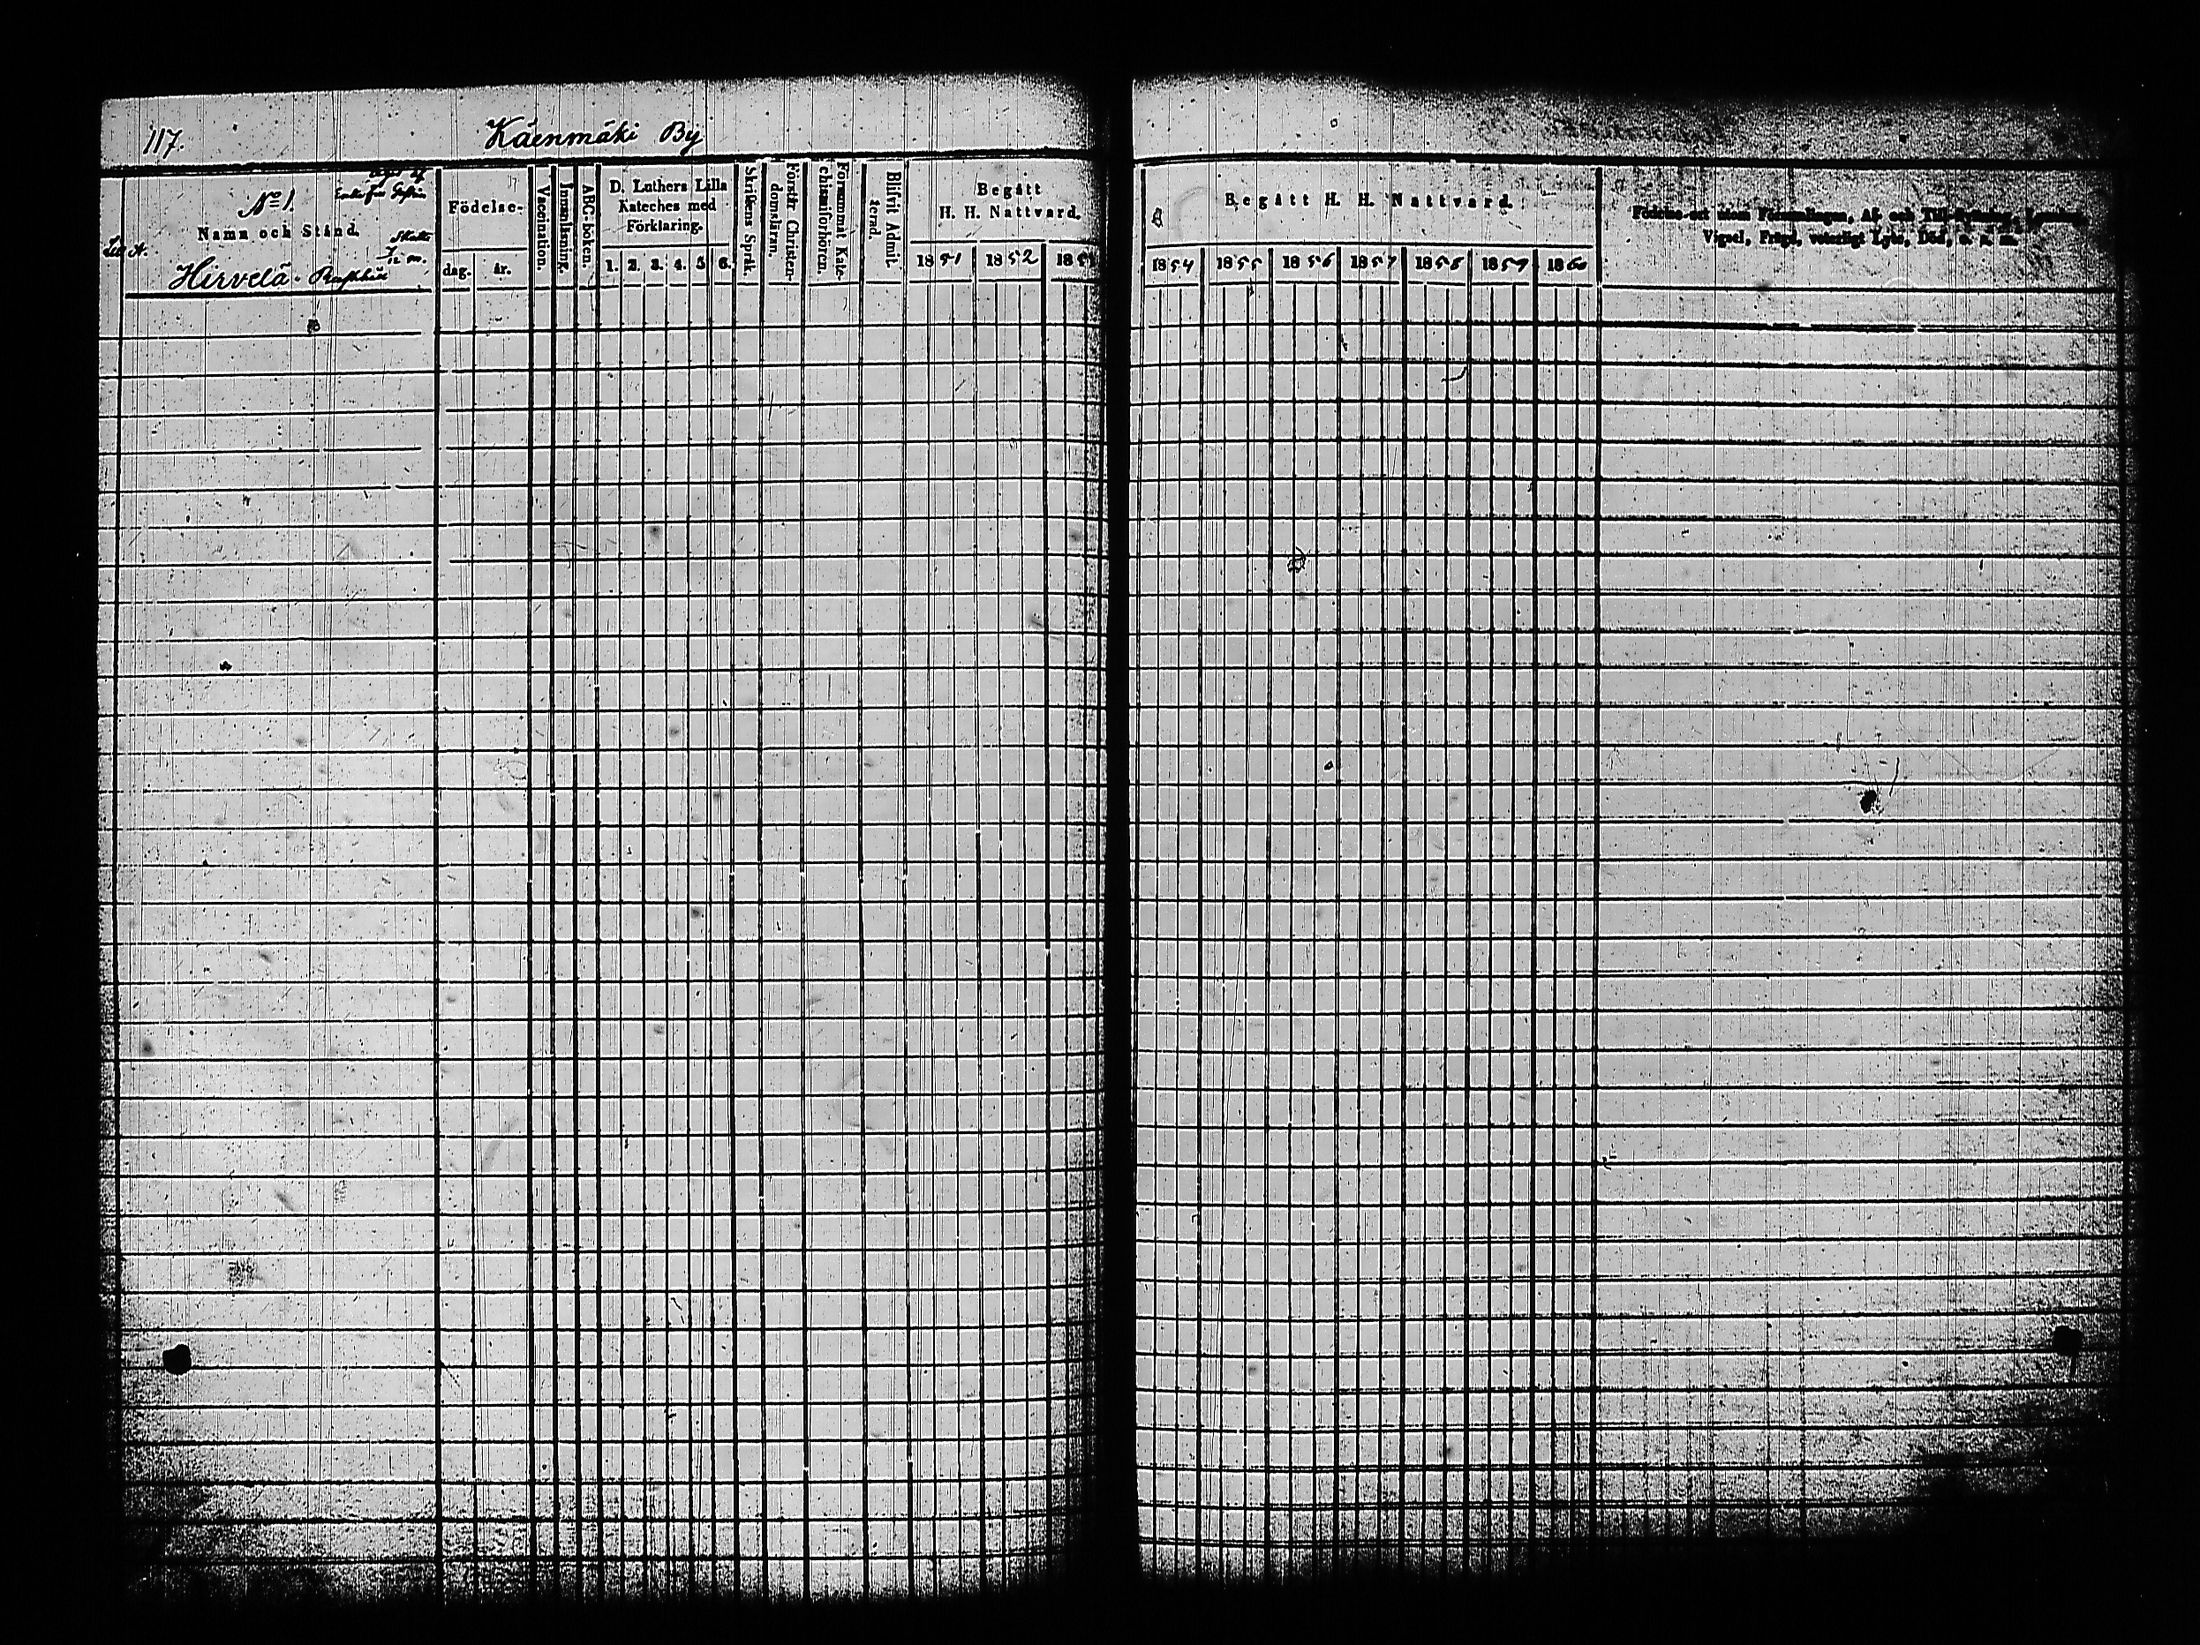 117.
Käenmäki By
No 1.
Namn och Stånd.
Litt A.
Skatte
Hirvelä
Födelse-
dag. år.
Vaccination.
Innanläsning.
ABC-boken.
D. Luthers Lilla
Kateches med
Förklaring.
1. 2. 3. 4. 5 6.
Skriftens Språk.
Förstår Christen-
domsläran.
Försummat Kate-
chismiförhören.
Blifvit Admit-
terad.
Begått
H. H. Nattvard.
1851 1852 185
Begått H. H. Nattvard.
1854 1855 1856 1857 1858 1859 1860
Födelse-ort utom Församlingen, Af- och Till-flyttning, Lysning,
Vigsel, Frägd, veterligt Lyte, Död, o. s. m.